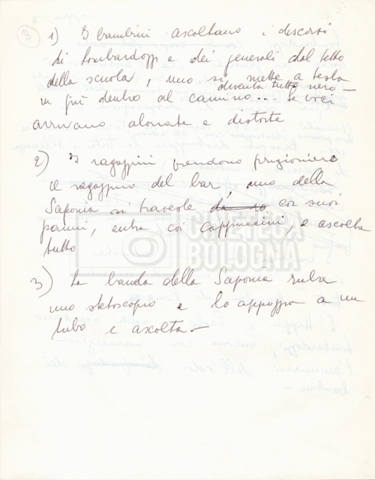 3
1) I bambini ascoltano i discorsi
di Lombardozzi e dei generali dal tetto
della scuola, uno si mette a testa
in giù dentro al camino... diventa tutto nero - le voci
arrivano alonate e distorte
2) I ragazzini prendono prigioniero
il ragazzino del bar, uno della
Saponia si traveste con i suoi
panni, entra coi cappuccini, e ascolta
tutto
CINETECA
BOLOGNA
3) La banda della Saponia ruba
uno stetoscopio e lo appoggia a un
tubo e ascolta -